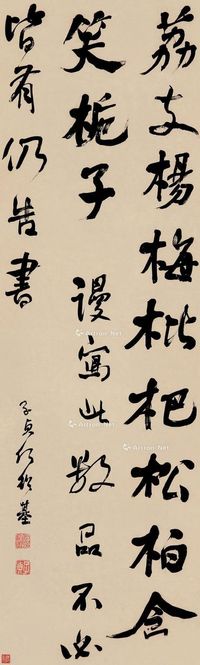 荔支楊梅枇杷松柏含
笑梔子 謾寫此數品不必
皆有仍告書
子貞何紹基